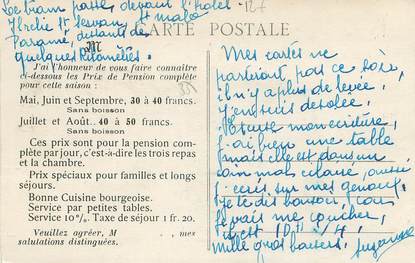 Le tram passe devant l'hotel.
Il relie St Servan, St malo
Paramé, distants de
quelques Kilomètres.
CARTE POSTALE
127
M
J'ai l'honneur de vous faire connaître
ci-dessous les Prix de Pension complète
pour cette saison :
Mai, Juin et Septembre, 30 à 40 francs.
Sans boisson
Juillet et Août.. 40 à 50 francs.
Sans boisson
Ces prix sont pour la pension com-
plète par jour, c'est-à-dire les trois repas
et la chambre.
Prix spéciaux pour familles et longs
séjours.
Bonne Cuisine bourgeoise.
Service par petites tables.
Service 10 %. Taxe de séjour 1 fr. 20.
Veuillez agréer, M , mes
salutations distinguées.
Mes cartes ne
partiront pas ce soir,
il n'y a plus de levée,
j'en suis désolée.
Excuse mon écriture,
j'ai bien une table
mais elle est dans un
coin mal éclairé, aussi
j'écris sur mes genoux.
Je te dis bonsoir, car
je vais me coucher,
il est 10 h 1/4
Mille gros baisers. Suzanne